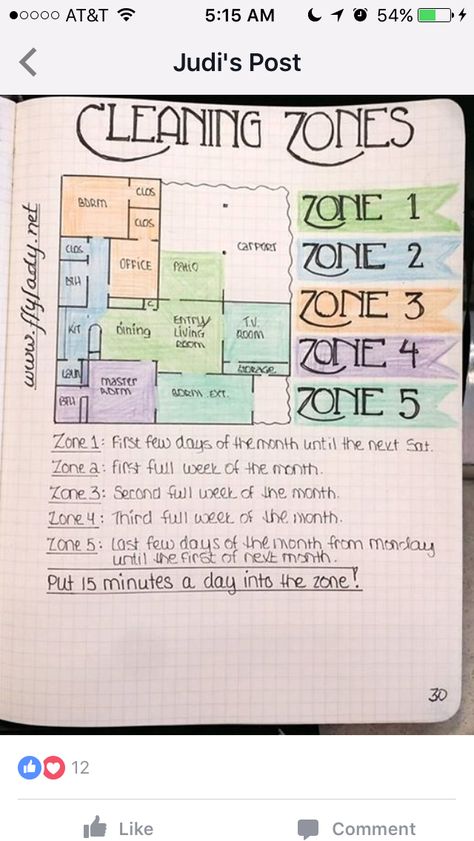 AT&T 5:15 AM 54%
Judi's Post
CLEANING ZONES
www.flylady.net
BDRM
CLOS
CLOS
CLOS
OFFICE
PATIO
CARPORT
BTH
C
KIT
Dining
ENTRY/
LIVING
ROOM
T.V.
ROOM
STORAGE
LAUN
BTH
MASTER
BDRM
BDRM EXT.
ZONE 1
ZONE 2
ZONE 3
ZONE 4
ZONE 5
Zone 1: First few days of the month until the next Sat.
Zone 2: first full week of the month.
Zone 3: Second full week of the month.
Zone 4: Third full week of the month.
Zone 5: Last few days of the month from monday
until the first of next month.
Put 15 minutes a day into the zone!
30
12
Like Comment